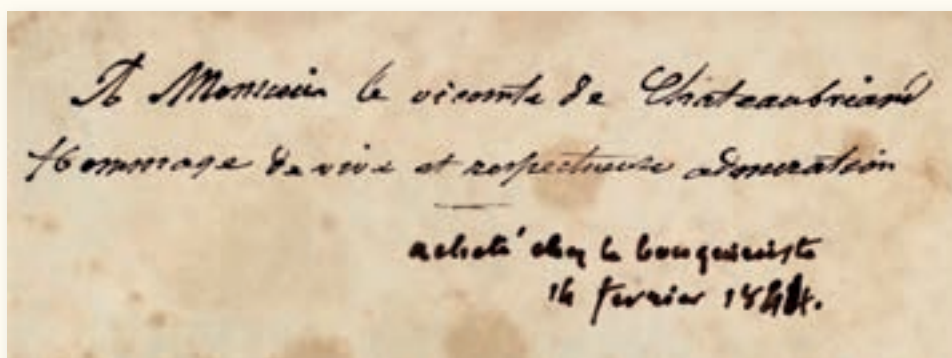 A Monsieur le vicomte de Chateaubriand
Hommage de vive et respectueuse admiration
acheté chez le bouquiniste
14 fevrier 1844.